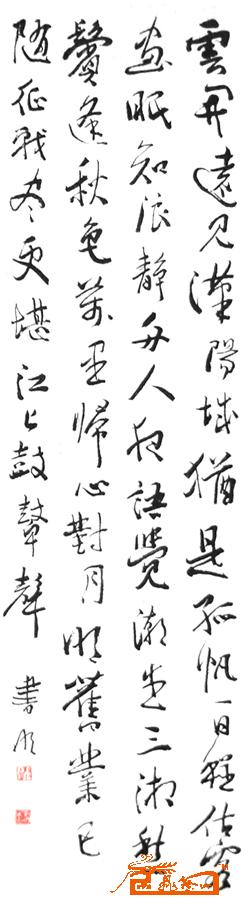 雲開遠見漢陽城猶是孤帆一日程估客
晝眠知浪靜舟人夜語覺潮生三湘愁
鬢逢秋色萬里歸心對月明舊業已
隨征戰盡更堪江上鼓鼙聲
書順